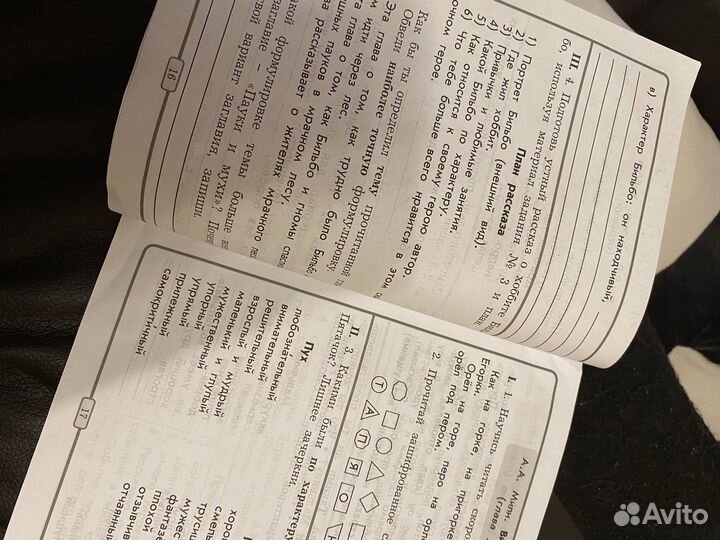 в) Характер Бильбо: он находчивый,
III. 4. Подготовь устный рассказ о хоббите
бо, используя материал задания № 3 и план.
План рассказа
1) Портрет Бильбо (внешний вид).
2) Где жил хоббит.
3) Привычки и любимые занятия.
4) Какой Бильбо по характеру.
5) Как относится к своему герою автор.
6) Что тебе больше всего нравится в этом
очном герое.
Как бы ты определил тему прочитанной
Обведи наиболее точную формулировку.
Эта глава о том, как трудно было Бильбо
идти через лес.
а глава о том, как Бильбо и гномы спас
шных пауков в мрачном лесу.
ва рассказывает о жителях мрачного ле
кой формулировке темы больше
заглавие – «Пауки и мухи»?
вой вариант заглавия, запиши.
16
А.А. Милн.
(глава
I. 1. Научись читать скоро
Как на горке, на пригорке
Егорки.
Орёл на горе, перо на орле
орёл под пером.
2. Прочитай зашифрованное с
Т А П Я О
II. 3. Какими были по характеру
Пятачок? Лишнее зачеркни.
Пух
любознательный
внимательный
решительный
взрослый
маленький и мудрый
мужественный и глупый
упорный
упрямый
прилежный
самокритичный
хоро
смел
трусли
мужес
фантаз
плохой
отзывчив
отчаянный
17
Avito